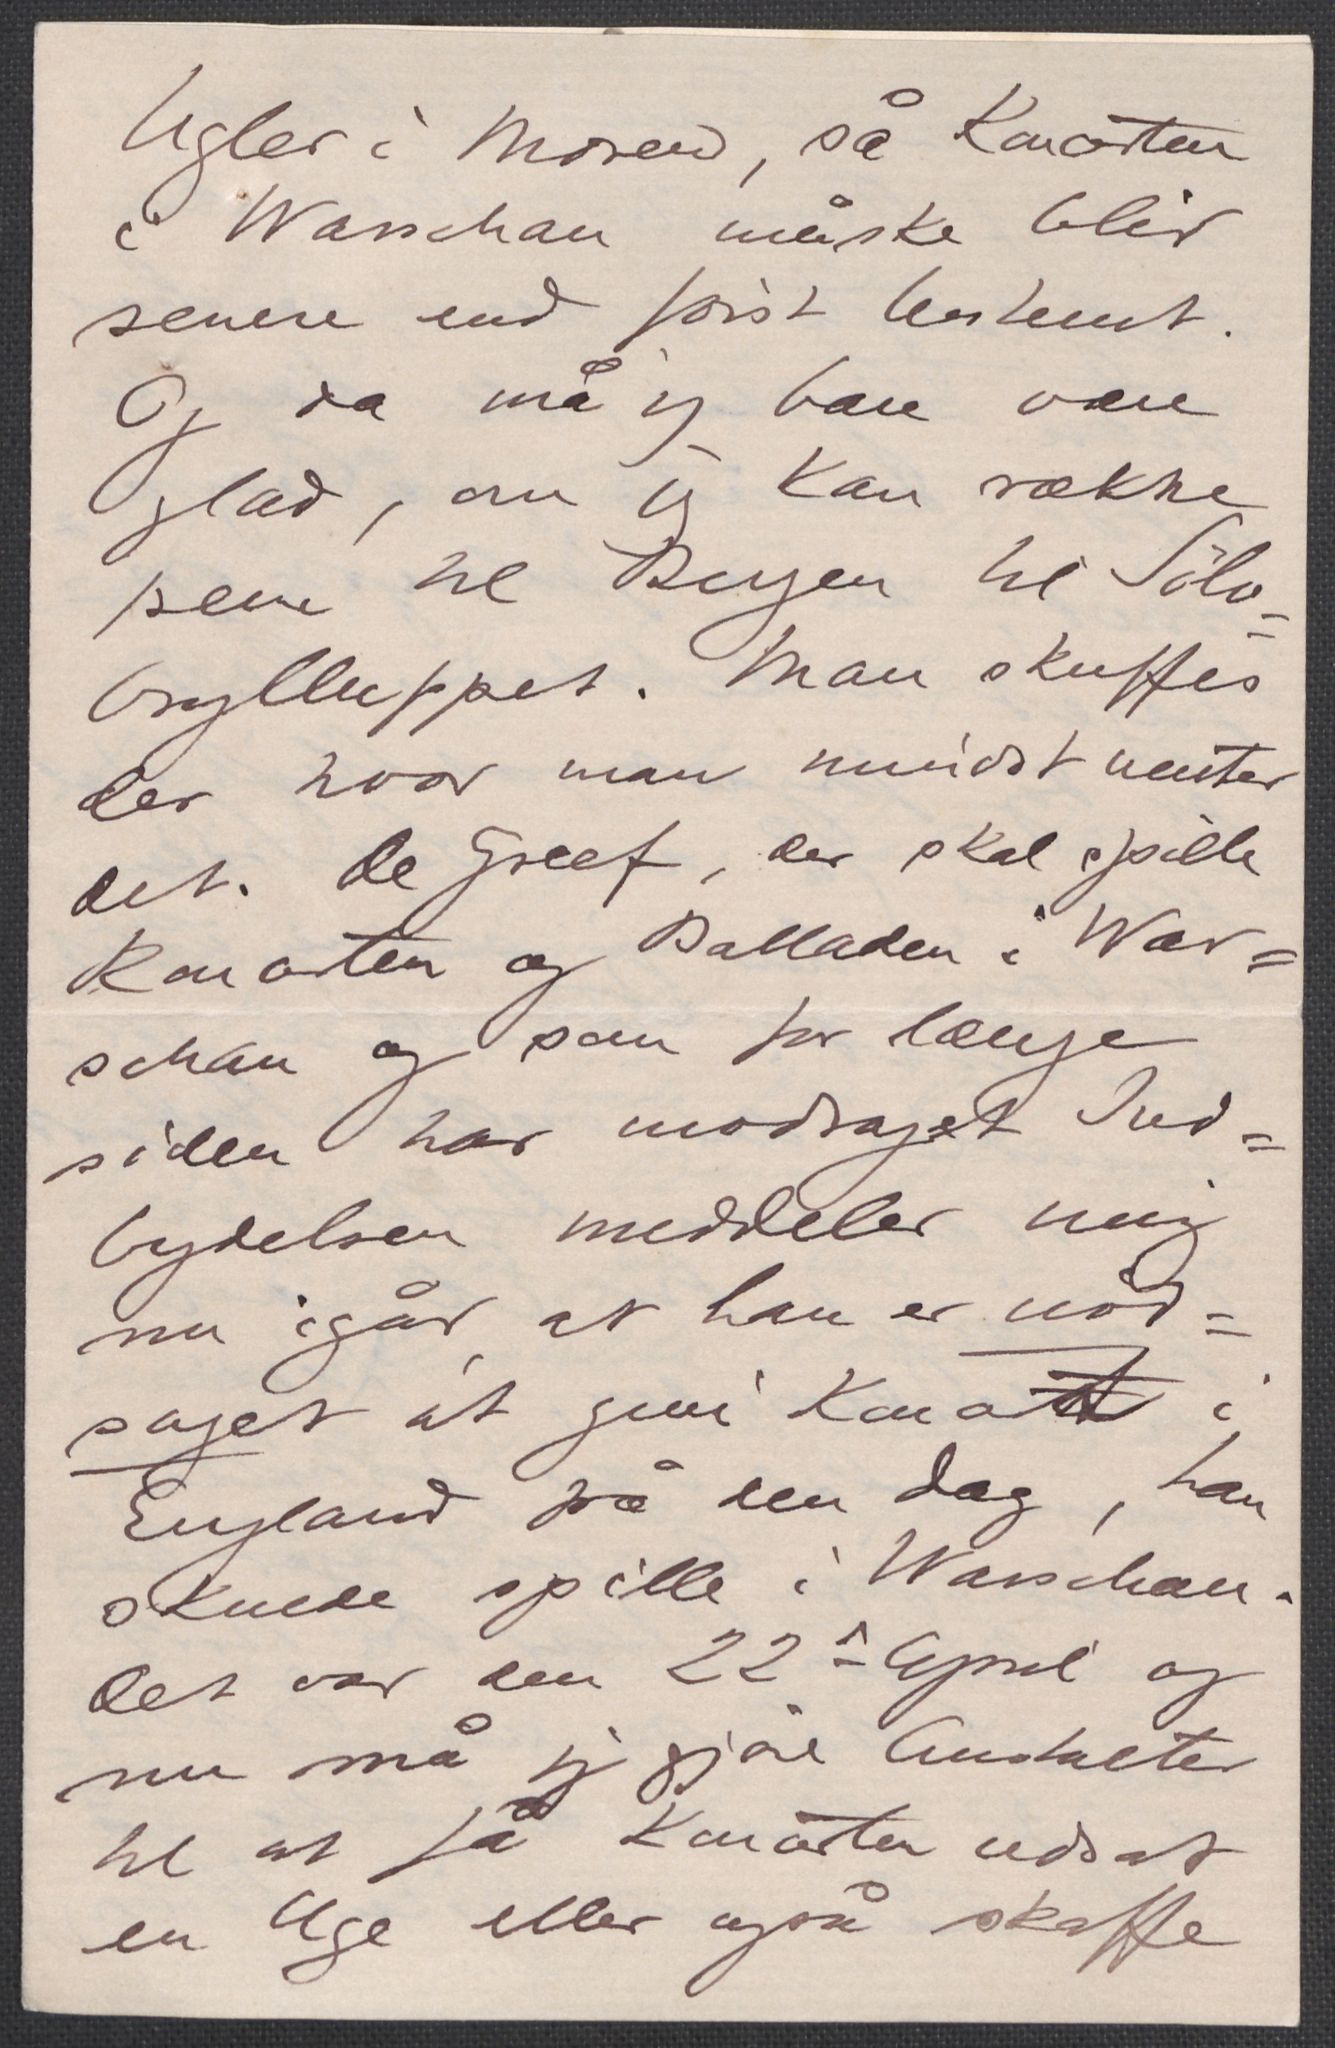 Ugler i Mosen, så Koncerten
i Warschau måske blir
senere end först bestemt.
Og da må jeg bare være
glad, om jeg kan række
frem til Bergen til Sölv=
brylluppet. Man skuffes
der hvor man mindst venter
det. De Greef, der skal spille
Koncerten og Balladen i War=
schau og som for længe
siden har modtaget Ind=
bydelsen meddeler mig
nu igår, at han er nöd=
saget at give Koncert i
England på den Dag, han
skulde spille i Warschau.
Det var den 22de April og
nu må jeg gjöre Anstalter
til at få Koncerten udsat
en Uge eller også skaffe